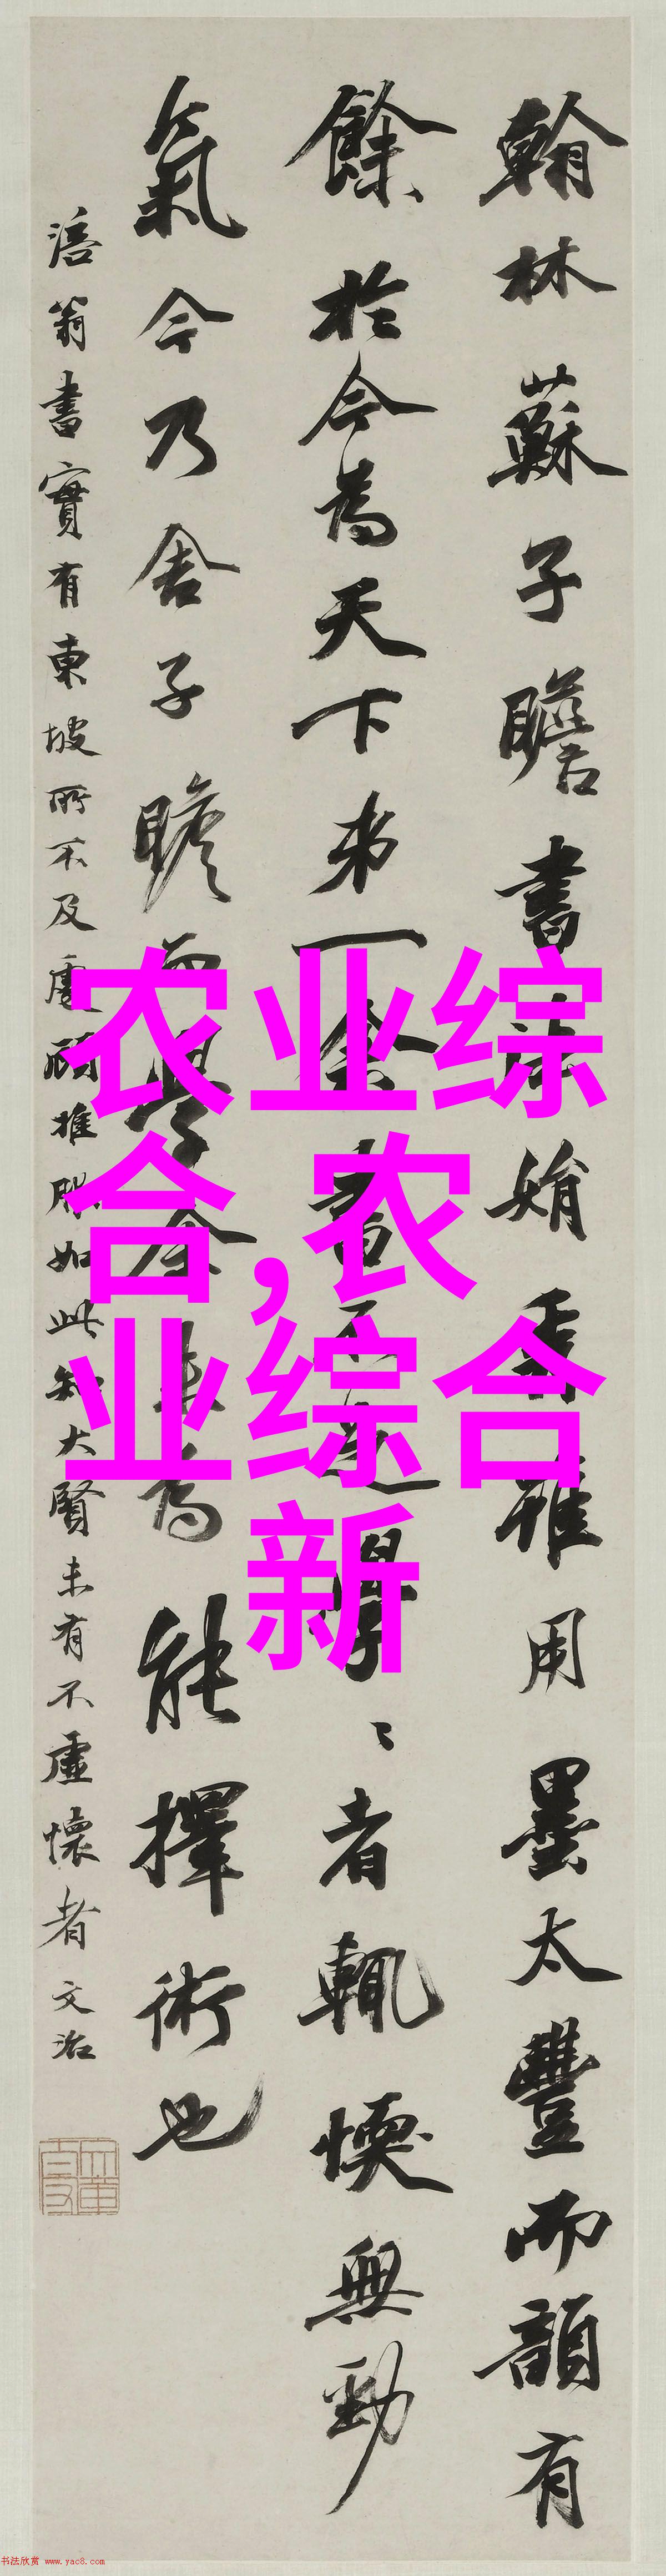 翰林蘇子瞻書法娟秀雖用墨太豐而韻有
餘於今為天下第一余書不足學〻者輒愞無勁
氣今乃舍子瞻而學余未為能擇術也
涪翁書實有東坡所不及處顧推服如此知大賢未有不虛懷者文治
农业综
合,农
业综合
新
书法欣赏 www.yac8.com